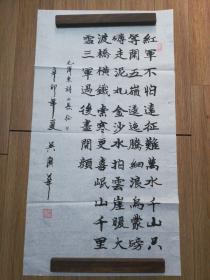 紅軍不怕遠征難萬水千山只
等閑五嶺逶迤騰細浪烏蒙磅
礴走泥丸金沙水拍雲崖暖大
渡橋橫鐵索寒更喜岷山千里
雪三軍過後盡開顏
毛澤東詩 長征
辛卯年夏 吳 華